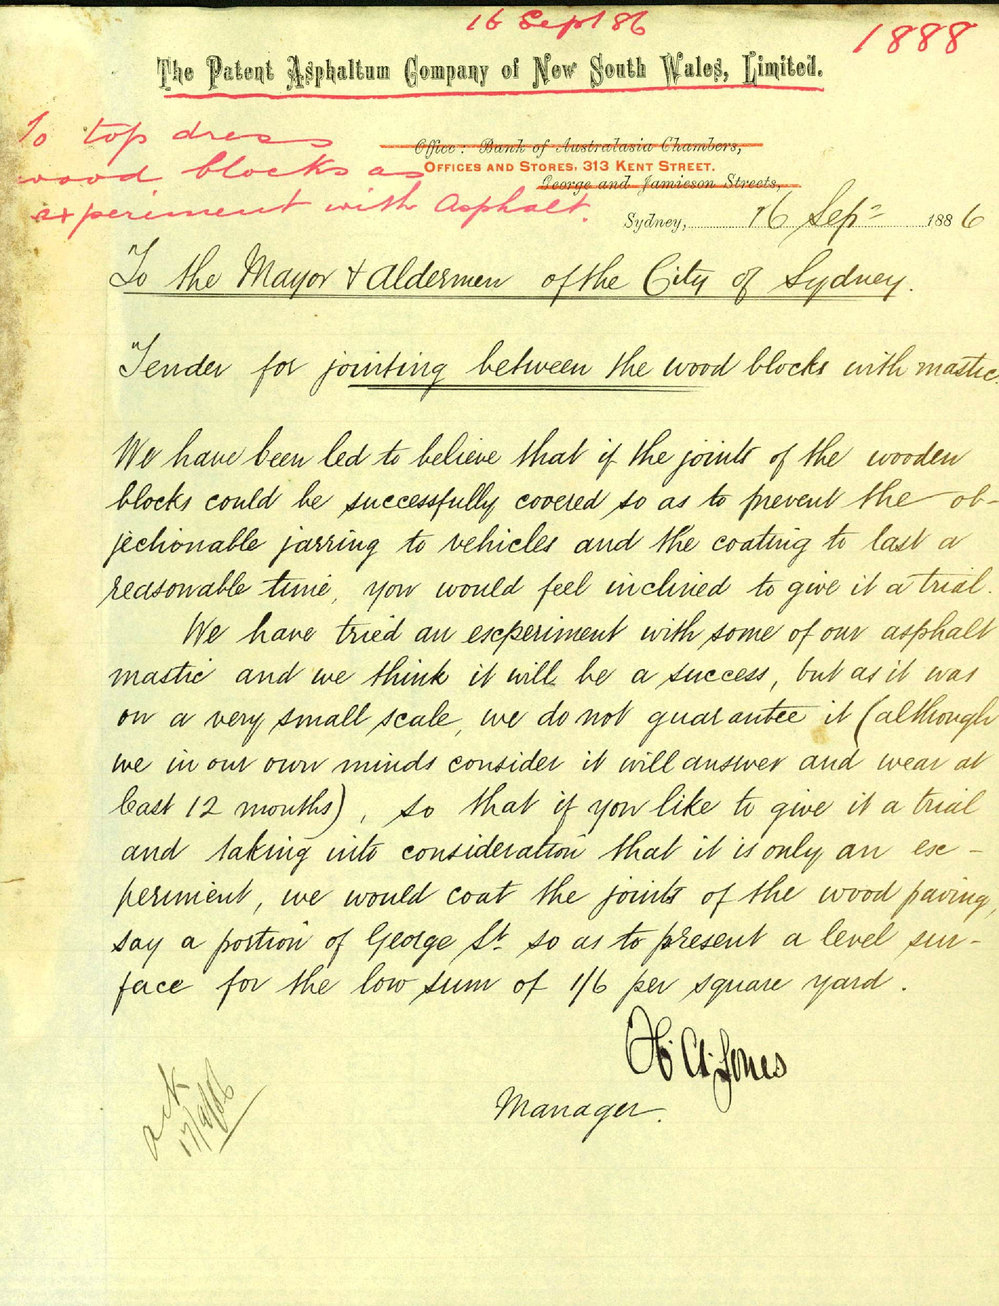 16 Sept 86
1888
The Patent Asphaltum Company of New South Wales, Limited.
To top dress
wood blocks as
experiment with Asphalt.
Office: Bank of Australasia Chambers,
OFFICES AND STORES, 313 KENT STREET.
George and Jamieson Streets,
Sydney, 16 Sepr 1886
To the Mayor & Aldermen of the City of Sydney.
Tender for jointing between the wood blocks with mastic.
We have been led to believe that if the joints of the wooden
blocks could be successfully covered so as to prevent the ob-
jectionable jarring to vehicles and the coating to last a
reasonable time, you would feel inclined to give it a trial.
We have tried an experiment with some of our asphalt
mastic and we think it will be a success, but as it was
on a very small scale, we do not guarantee it (although
we in our own minds consider it will answer and wear at
least 12 months), so that if you like to give it a trial
and taking into consideration that it is only an ex-
periment, we would coat the joints of the wood paving,
say a portion of George St. so as to present a level sur-
face for the low sum of 1/6 per square yard.
H. A. Jones
Manager.
ack
17/9/86